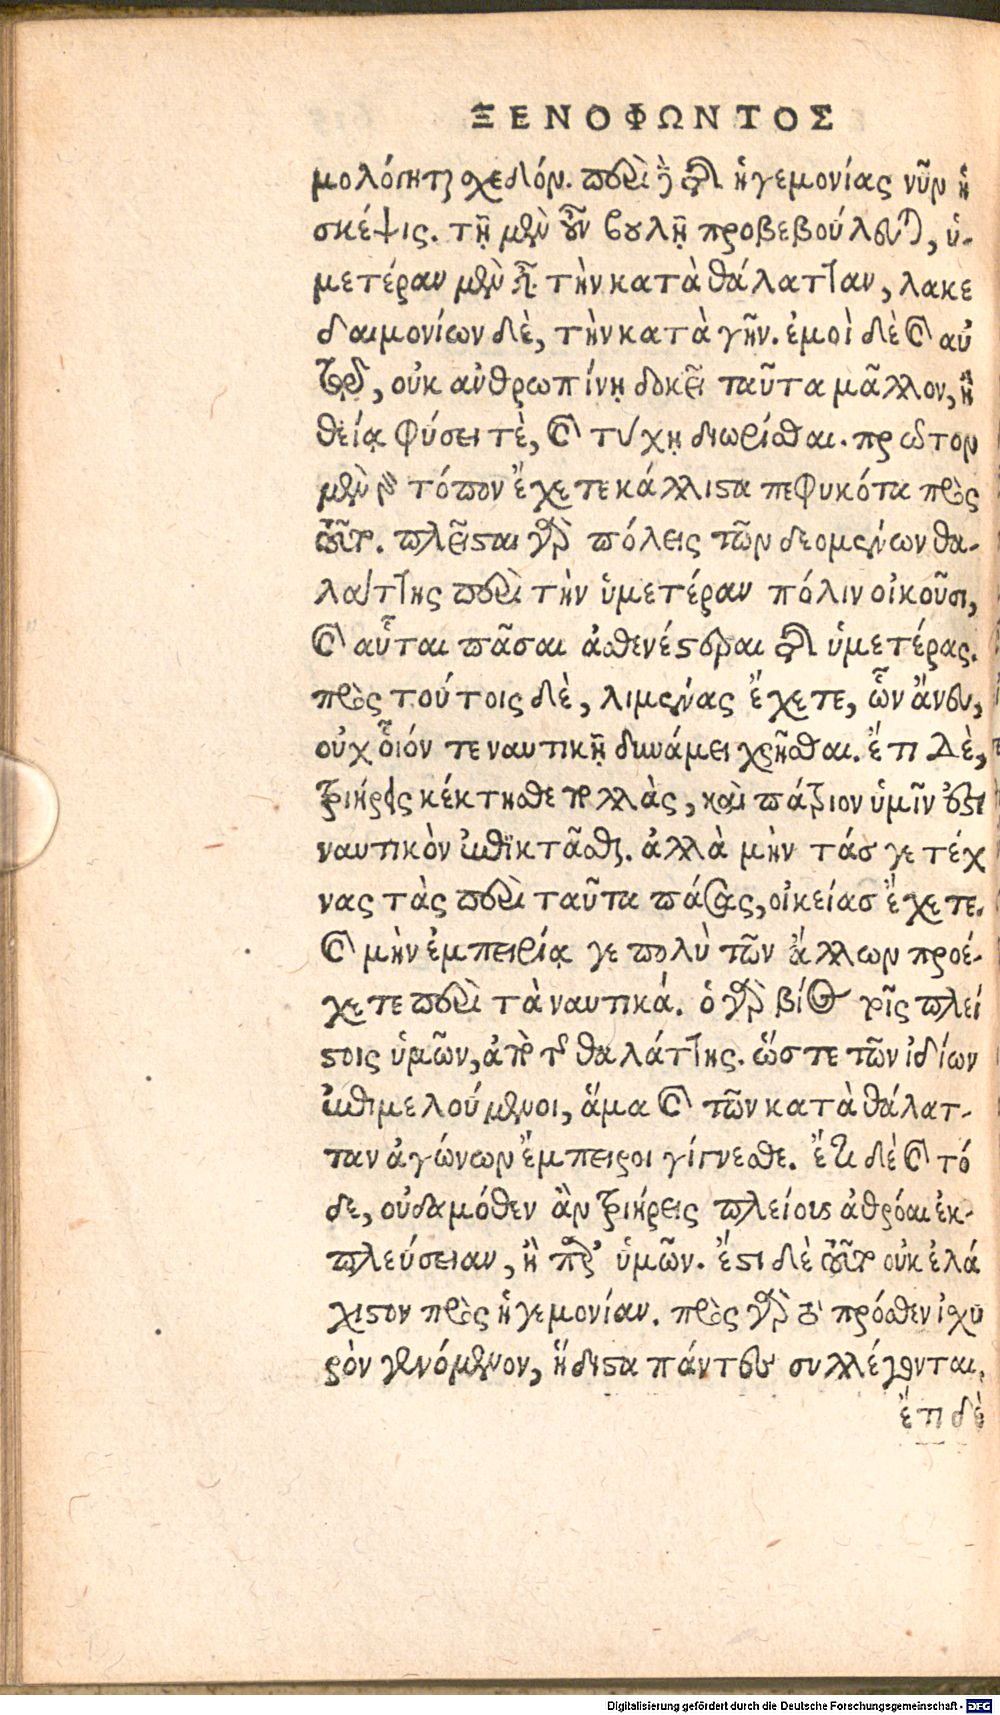 ΞΕΝΟΦΩΝΤΟΣ
μολόγηται σχεδόν. περὶ δὲ τῆς ἡγεμονίας νῦν ἡ
σκέψις. τῇ μὲν οὖν βουλῇ προβεβούλευται, ὑ-
μετέραν μὲν εἶναι τὴν κατὰ θάλατταν, λακε
δαιμονίων δὲ, τὴν κατὰ γῆν. ἐμοὶ δὲ καὶ αὐ
τῷ, οὐκ ἀνθρωπίνῃ δοκεῖ ταῦτα μᾶλλον, ἢ
θείᾳ φύσει τὲ, καὶ τύχῃ διωρίσθαι. πρῶτον
μὲν γὰρ τόπον ἔχετε κάλλιστα πεφυκότα πρὸς
τοῦτο. πλεῖσται γὰρ πόλεις τῶν δεομένων θα-
λάττης περὶ τὴν ὑμετέραν πόλιν οἰκοῦσι,
καὶ αὗται πᾶσαι ἀσθενέστεραι τῆς ὑμετέρας.
πρὸς τούτοις δὲ, λιμένας ἔχετε, ὧν ἄνευ,
οὐχ οἷόν τε ναυτικῇ δυνάμει χρῆσθαι. ἔτι δὲ,
τριήρεις κέκτησθε πολλὰς, καὶ πάτριον ὑμῖν ἐστι
ναυτικὸν ἐπικτᾶσθαι. ἀλλὰ μὴν τάς γε τέχ
νας τὰς περὶ ταῦτα πάσας, οἰκείας ἔχετε.
καὶ μὴν ἐμπειρίᾳ γε πολὺ τῶν ἄλλων προέ-
χετε περὶ τὰ ναυτικά. ὁ γὰρ βίος τοῖς πλεί
στοις ὑμῶν, ἀπὸ τῆς θαλάττης. ὥστε τῶν ἰδίων
ἐπιμελούμενοι, ἅμα καὶ τῶν κατὰ θάλατ-
ταν ἀγώνων ἔμπειροι γίγνεσθε. ἔτι δὲ καὶ τό
δε, οὐδαμόθεν ἂν τριήρεις πλείους ἀθρόαι ἐκ-
πλεύσειαν, ἢ παρ' ὑμῶν. ἔστι δὲ τοῦτο οὐκ ἐλά
χιστον πρὸς ἡγεμονίαν. πρὸς γὰρ τὸ πρόσθεν ἰσχυ
ρὸν γενόμενον, ἥδιστα πάντες συλλέγονται.
ἔτι δὲ
Digitalisierung gefördert durch die Deutsche Forschungsgemeinschaft - DFG